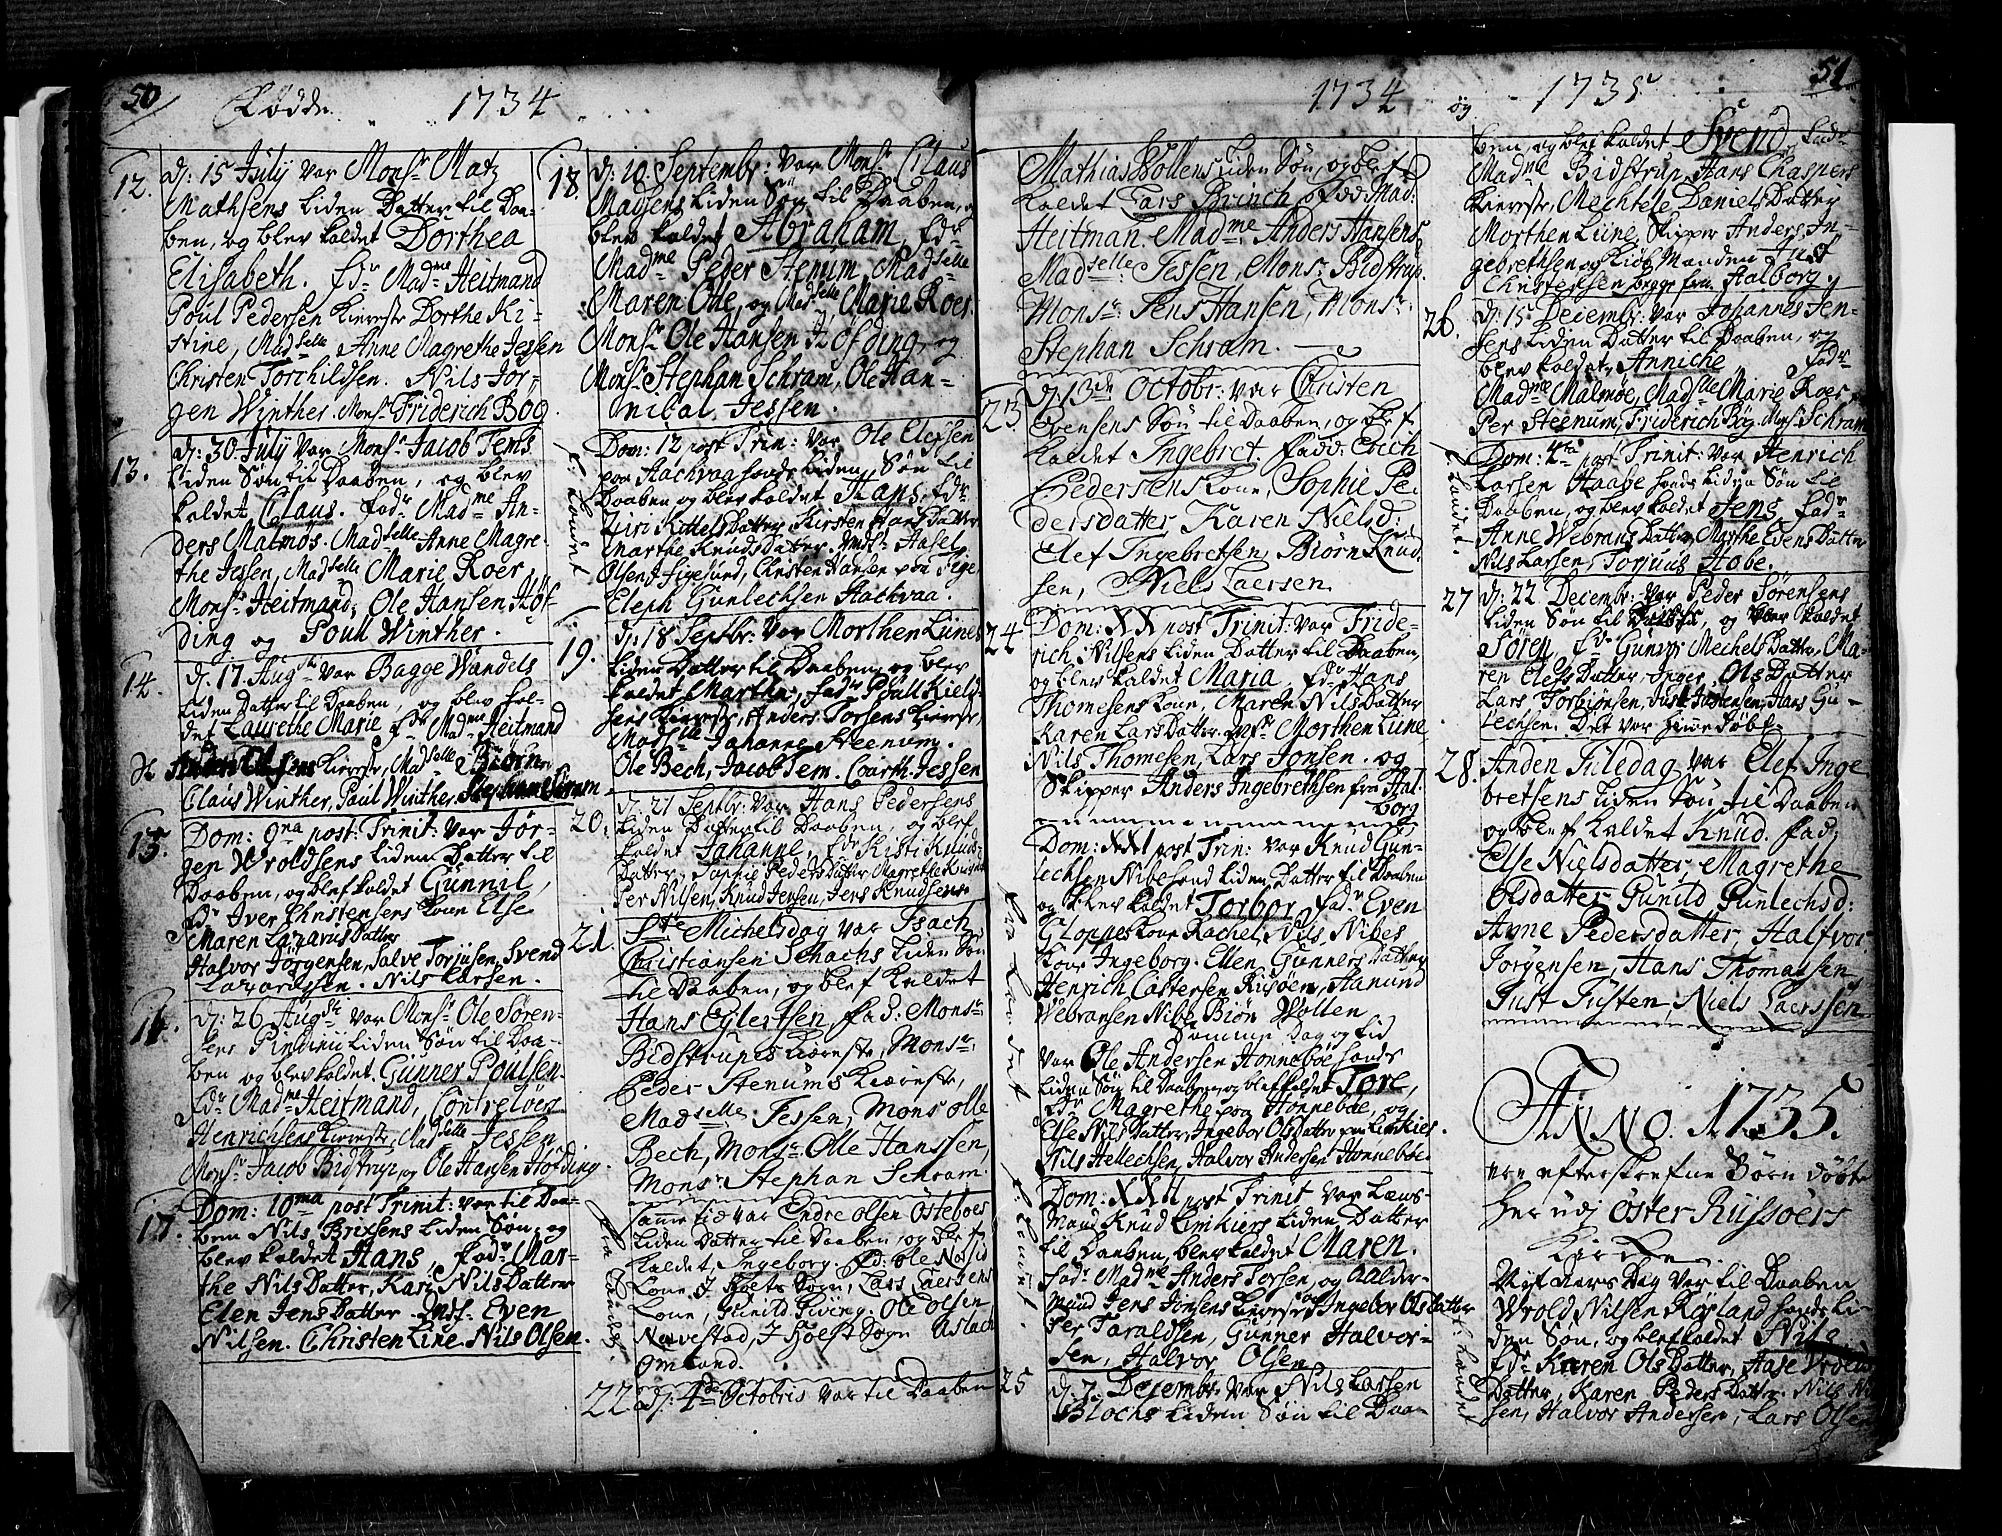 50
Fødde 1734
12. d: 15 July var Monsr Matz
Mathsens Liden Datter til Daa-
ben, og blev kaldet Dorthea
Elisabeth. fdr Madme Heitmand
Poul Pedersen Kiereste Dorthe Ki-
stine, Madselle Anne Magrethe Jessen
Christen Torchildsen. Nils Jør-
gen Winther. Monsr Friderich Bog
13. d: 30 July var Monsr Jacob Tems
Liden Søn til Daaben, og blev
kaldet Claus. fadr Madme An-
ders Malmøs. Madselle Anne Magre-
the Jessen, Madselle Marie Roer,
Monsr Heitmand, Ole Hansen Høf-
ding og Poull Winther.
14. d: 17 Augsti var Bagge Wandels
Liden Datter til Daaben, og blev kal-
det Laurethe Marie fr Madme Heitmand
Kiereste, Madselle Biørn
Claus Winther, Paul Winther,
15. Dom: 9na post: Trinit: var Jør-
gen Wroldsens Liden Datter til
Daaben, og blef kaldet Gunnil,
fdr Iver Christensens kone Else
Maren Lazarus Datter
Halvor Jørgensen, Salve Torjusen, Svend
Lazarussen. Nils Larsen.
16. d: 26 Augsti var Monsr Ole Søren-
sens Liden Søn til Daa-
ben og blev kaldet. Gunner Poulsen.
fdr Madme Heitmand, Contreløer
Henrichsens Kiereste, Madselle Jessen
Monsr Jacob Bidstrup, og Ole Hansen Høfding.
17. Dom: 10ma post Trinit: var til Daa-
ben Nils Brixsens Liden Søn, og
blev kaldet Hans, fadr Mar-
the Nils Datter, Kari Nils Datter
Elen Jens Datter. Msr: Even
Nilsen. Christen Line. Nils Olsen.
18. d: 10 Septembr: var Monsr Claus
Madsens Liden Søn til Daaben, og
blev kaldet Abraham, fdr
Madme Peder Stenum, Madselle
Maren Ode, og Madselle, Marie Roer.
Monsr Ole Hansen Høfding, og
Monsr Stephan Schram, Ole Han-
nibal Jessen.
Dom: 12 post Trin: var Ole Elefsen
paa Liden Søn til
Daaben og blev kaldet Hans, fdr
Kittels Datter, Kirsten Hans Datter
Marthe Knuds Datter. Msr: Aasel
Olsen, Christen Hansen paa
Eleph Gunlechsen Halevaa.
19. d: 18 Septbr: var Morthen Lünes
Liden Datter til Daaben, og blev
kaldet Martha, fadr Poull Kiels-
sens Kiereste, Anders Torsens Kiereste,
Madselle Johanne Steenum.
Ole Bech, Jacob Tem. Coarth. Jessen
20. d: 21 Septbr: var Hans Pedersens
Liden Datter til Daaben, og blef
kaldet Johanne, fdr Kisti Knuds-
Datter, Sophie Peders Datter Magrethe
Per Nilsen, Knud Jensen, Jens Knudsen
21. Ste Michelsdag var Isach
Christiansen Schachs Liden Søn
til Daaben, og blef kaldet
Hans Eylertsen fad: Monsr:
Bidstrupes Kiæreste, Monsr:
Peder Stenums Kiæreste,
Madselle: Jessen, Mons olle
Bech, Monsr Olle Hanssen,
Monsr Stephan Schram.
Samme tid var Endre Olsen Østeboes
Liden Datter til Daaben, og blef
kaldet, Ingeborg. fd: Ole
kone, I Holts Sogn, Lars Laersens
kone, Gunild. Ole Olsen
Navestad, I Holt Sogn Aslach
Omland.
22 d: 4de Octobris var til Daaben
51
1734 og 1735
Mathias Bollens Liden Søn, og blef
kaldet Lars Brinch fad: Mad:
Heitman. Madme Anders Hansens
Madselle Jessen, Mons: Bidstrup
Monsr: Jens Hansen, Monsr
Stephan Schram.
23. d: 13de Octobr: var Christen
Evensens Søn til Daaben, og blef
kaldet Ingebret. fadd: Erich
Pedersens kone, Sophie Pe-
dersdatter Karen Nielsd:
Elef Ingebretsen, Biørn Knud
sen, Niels Laersen.
24 Dom: XX post Trinit: var Fride-
rich Nilsens Liden Datter til Daaben,
og blev kaldet Maria. fdr Hans
Thomesens kone, Maren Nils Datter
Karen Lars Datter. Msr Morthen Lüne
Nils Thomesen, Lars Jonsen. og
Skipper Anders Ingebrethsen fra Aal-
borg
Dom: XXI post Trin: var Knud Gun-
lechsen Nibe Liden Datter til Daaben
og blev kaldet Torbor fadr Even
Gloppes kone Rachel, Nils Nibes
kone Ingeborg. Ellen Gunners Datter
Henrich Castersen Risøen, Hamund
Webransen Nibe, Biørn Wollen
Samme Dag og tid
var Ole Andersen Honneboe
Liden Søn til Daaben og blef kaldet Tore,
fdr Magrethe paa Honneboe, og
Else Nils Datter, Ingebor Ols Datter paa Limkier.
Nils Hellechsen, Halvor Andersen Honneboe
Dom: XXII post Trinit var Læns-
mand Knud Limkiers Liden Datter
til Daaben, blev kaldet Maren.
fadr Madme Anders Torsen, og Aalder-
mand Jens Jonsens Kiereste og Ingebor Ols Datter
Per Taraldsen, Gunner Halvor-
sen, Halvor Olsen
25 d: 7 Decembr var Nils Larsen
Blochs Liden Søn til Daa-
ben, og blef kaldet Svend, fadr
Madme Bidstrup, Hans Chaspers
Kiereste, Mechtele Daniels Datter
Morthen Lüne, Skipper Anders In-
gebrethsen og Kiøbmanden Just
Christensen begge fra Aalborg.
26. d: 15 Decembr: var Johannes Jen-
sens Liden Datter til Daaben, og
blev kaldet Anniche fadr
Madme Malmøe, Madselle Marie Roer
Per Steenum, Friderich Bög, Mosr Schram
Dom: 4ta post Trinit: var Henrich
Larsen Haabe Liden Søn til
Daaben, og blev kaldet Jens fadr
Anne Webrans Datter, Marthe Edens Datter
Nils Larsen, Torjuus Hobe.
27 d: 22 Decembr: var Peder Sørensens
Liden Søn til, og blev kaldet
Søren, fdr Gunnor Mechels Datter, Ma-
ren Elefs Datter, Inger Ols Datter
Lars Torbiønsen, Just Justensen, Hans Gu-
lechsen. Det var hiemmedøbt.
28. Anden Juledag var Elef Inge
bretsens Liden Søn til Daaben
og blef kaldet Knud. fad:
Else Nielsdatter, Magrethe
Olsdatter Gunild Gunlechsd:
Anne Pedersdatter, Halfvor
Jørgensen, Hans Thomassen
Just Justen, Niels Laerssen
Anno 1735.
ere efterskrefne Børn døbte
her udj Øster Riissøers
Kircke.
Nyt aars Dag var til Daaben
Wrold Nilsen Røsland Li-
den Søn, og blef kaldet Nils
fdr Karen Ols Datter, Aase
Datter, Karen Peders Datter. Nils
sen, Halvor Andersen, Lars Olsen